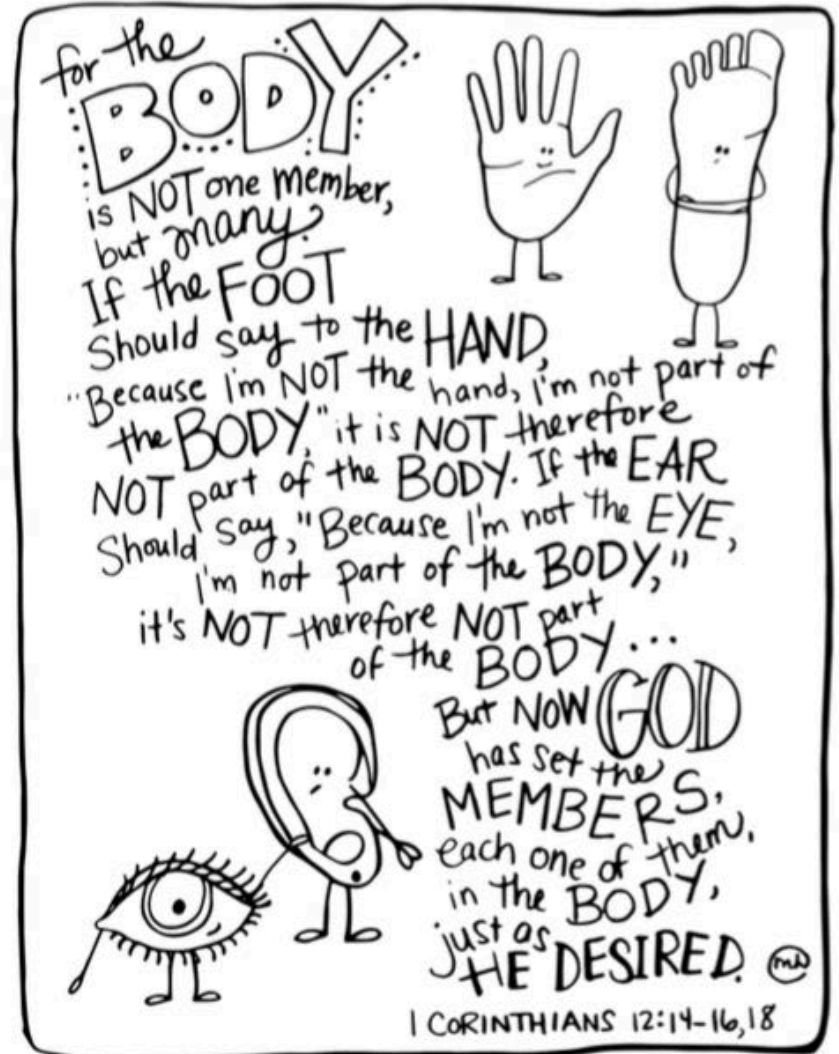 for the
BODY
is NOT one member,
but many.
If the FOOT
Should say to the HAND,
"Because I'm NOT the hand, i'm not part of
the BODY," it is NOT therefore
NOT part of the BODY. If the EAR
Should say, "Because I'm not the EYE,
I'm not part of the BODY,"
it's NOT therefore NOT part
of the BODY...
But NOW GOD
has set the
MEMBERS,
each one of them,
in the BODY,
just as
HE DESIRED.
1 CORINTHIANS 12:14-16,18